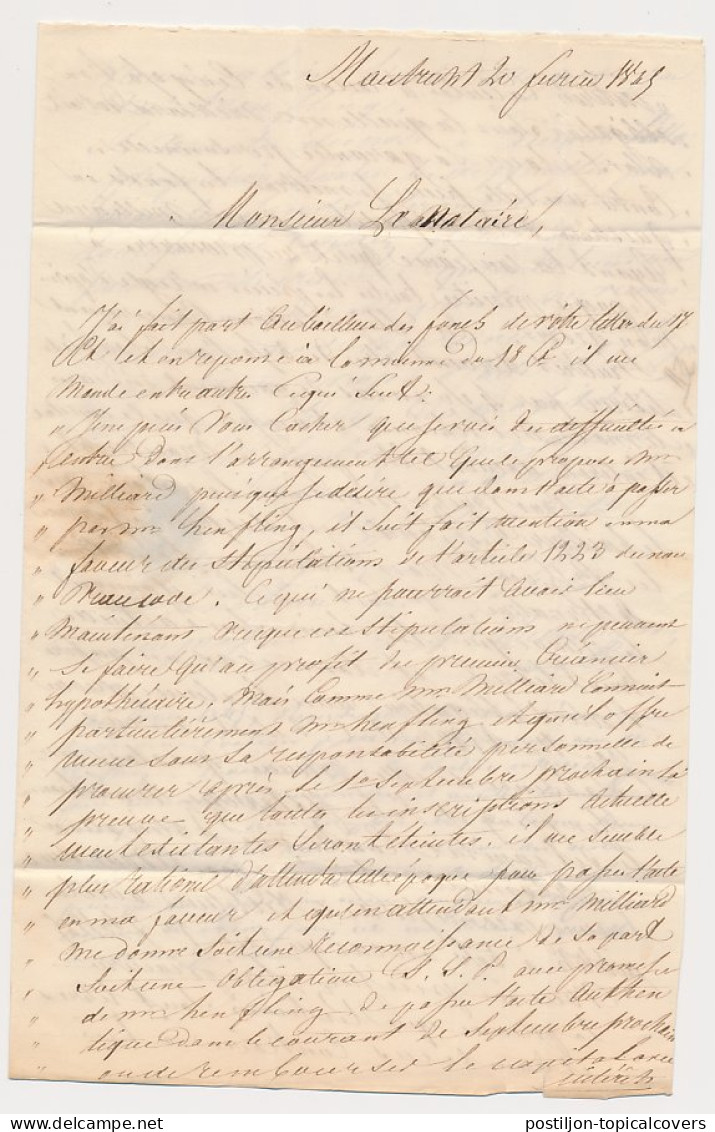 Monsieur Le Notaire,
J'ai fait part au bailleur des fonds de vôtre lettre du 17
Ct et en reponse à la mienne du 18 Ct il me
Mande entre autres Ce qui Suit:
" Je ne puis Vous Cacher que je vois des difficultés à
" entrer dans l'arrangement tel que le propose Mr
" Milliard puisque je désire que dans l'acte à passer
" par Mr henfling, il Soit fait mention en ma
" faveur des Stipulations de l'article 1223 du nou
" veau code. Ce qui ne pourrait avoir lieu
" Maintenant vu que ces Stipulations ne peuvent
" Se faire qu'au profit du premier Créancier
" hypothécaire, Mais Comme Mr Milliard Connait
" particulièrement Mr henfling et qu'il offre
" meme sous sa responsabilité personnelle de
" procurer après le 1er Septembre prochain la
" preuve que toutes les inscriptions Actuelle
" ment existantes Seront éteintes, il me Semble
" plus rationel d'attendre cette époque pour passer l'acte
" en ma faveur et qu'en attendant Mr Milliard
" me donne Soit une reconnaissance de Sa part
" Soit une Obligation S. S. P. avec promesse
" de Mr henfling de passer l'acte Authen
" tique dans le courant de Septembre prochain
" ou de rembourser le capital avec
intérêts
postiljon-topicalcovers
postiljon-topicalcovers.com